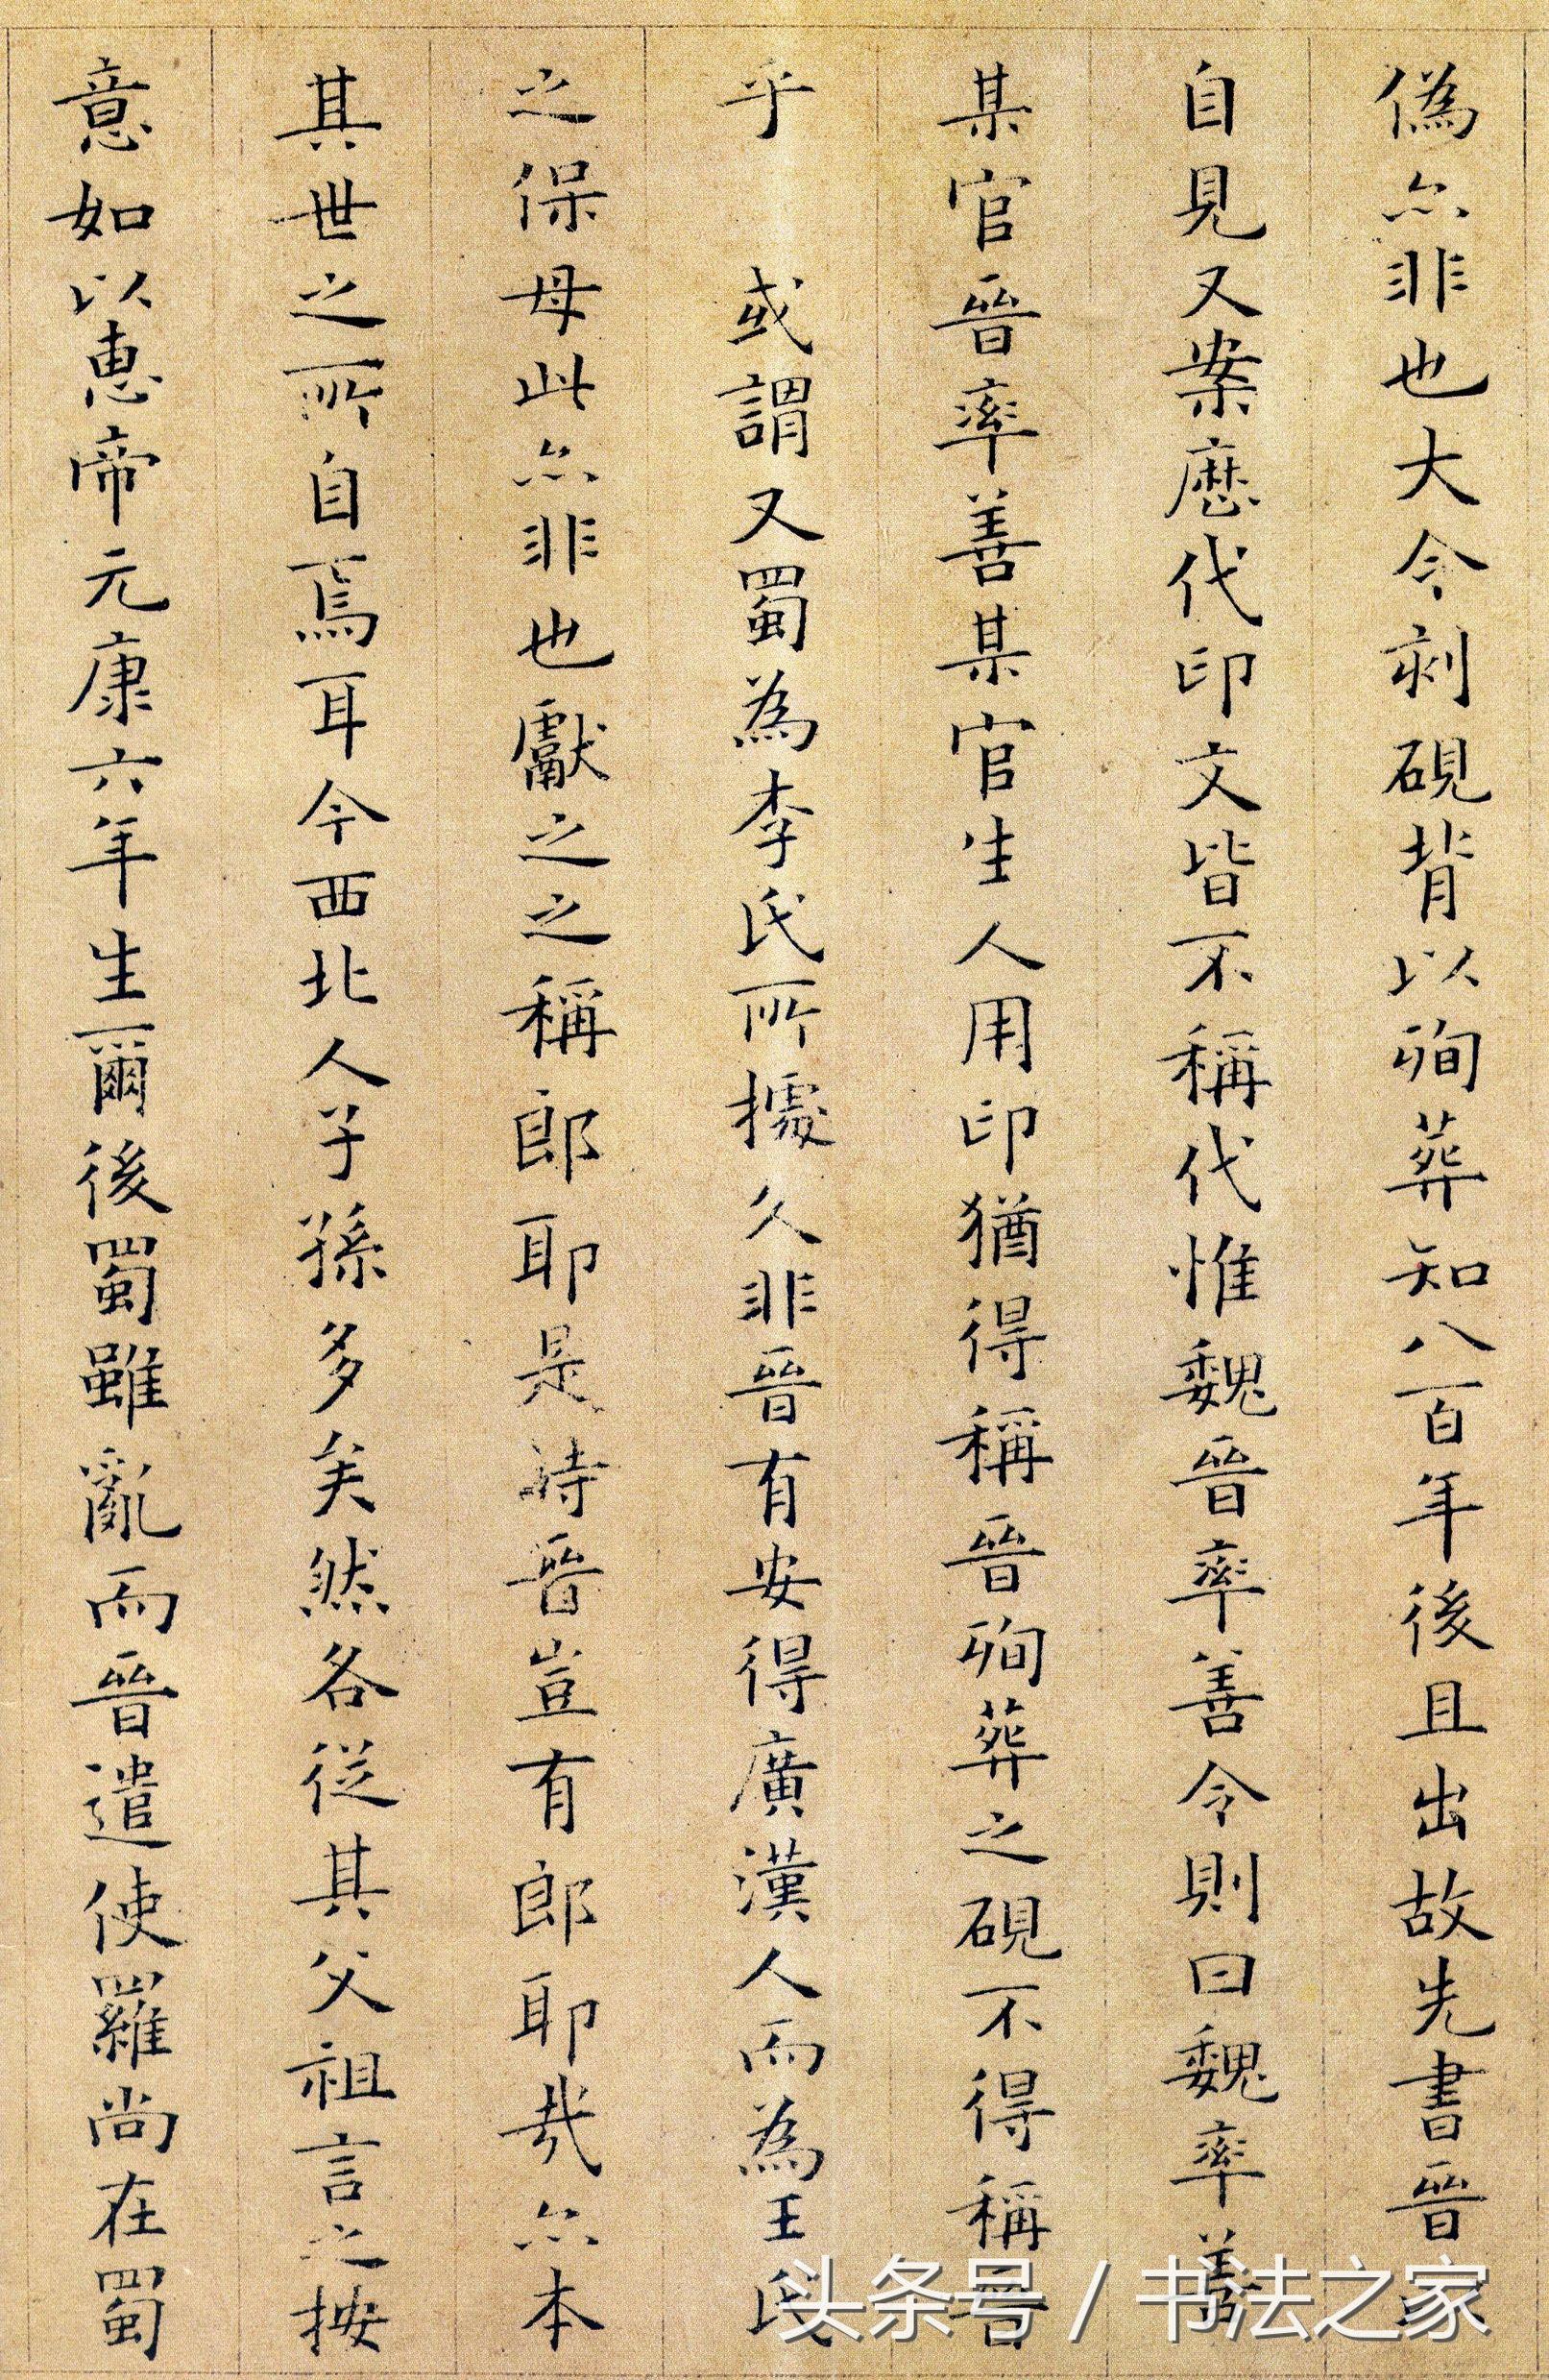 偽亦非也大令刻硯背以殉葬知八百年後且出故先書晉
自見又案歷代印文皆不稱代惟魏晉率善令則曰魏率善
某官晉率善某官生人用印猶得稱晉殉葬之硯不得稱晉
乎　或謂又蜀為李氏所據久非晉有安得廣漢人而為王氏
之保母此亦非也獻之之稱郎耶是時晉豈有郎耶哉亦本
其世之所自焉耳今西北人子孫多矣然各從其父祖言之按
意如以惠帝元康六年生爾後蜀雖亂而晉遣使羅尚在蜀
头条号 / 书法之家